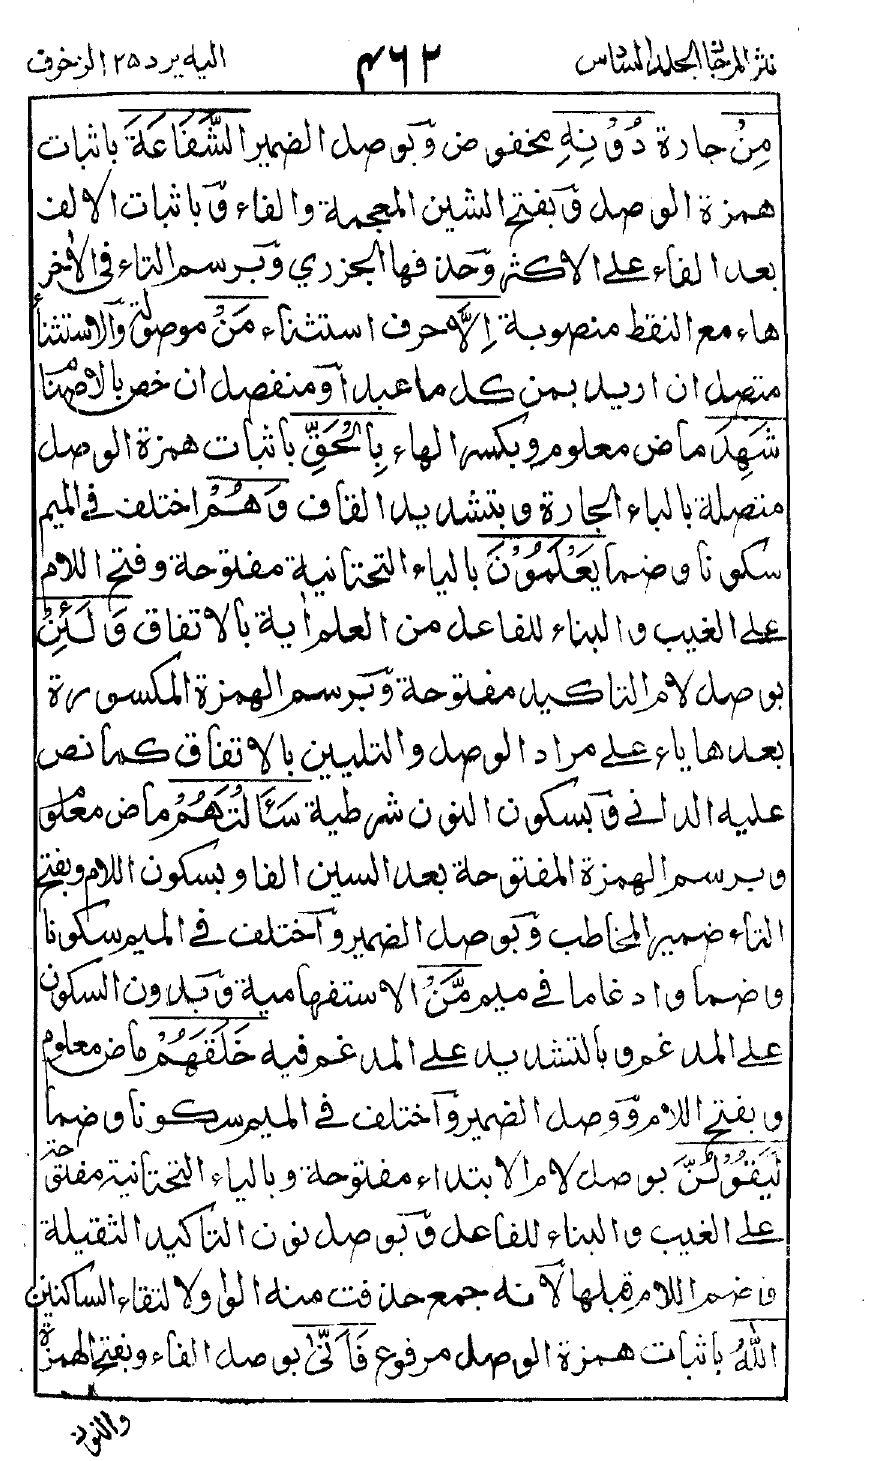 نثر المرجان الجلد السادس ۴۶۲ اليه يرد ۲۵ الزخرف
مِنْ جارة دُوْنِهِ مخفوض وبوصل الضمير الشَّفَاعَةَ باثبات
همزة الوصل وبفتح الشين المعجمة والفاء وباثبات الالف
بعد الفاء على الاكثر وحذفها الجزري وبرسم التاء في الأخر
هاء مع النقط منصوبة اِلَّا حرف استثناء مَنْ موصولة والاستثناء
متصل ان اريد بمن كل ما عبد او منفصل ان خص بالاصنام
شَهِدَ ماض معلوم وبكسر الهاء بِالْحَقِّ باثبات همزة الوصل
متصلة بالباء الجارة وبتشديد القاف وَهُمْ اختلف في الميم
سكونا وضما يَعْلَمُوْنَ بالياء التحتانية مفتوحة وفتح اللام
على الغيب والبناء للفاعل من العلم اٰية بالاتفاق وَلَئِنْ
بوصل لام التاكيد مفتوحة وبرسم الهمزة المكسورة
بعدها ياء على مراد الوصل والتليين بالاتفاق كما نص
عليه الداني وبسكون النون شرطية سَئَالْتَهُمْ ماض معلوم
وبرسم الهمزة المفتوحة بعد السين الفا وبسكون اللام وبفتح
التاء ضمير المخاطب وبوصل الضمير واختلف في الميم سكونا
وضما وادغاما في ميم مَّنْ الاستفهامية وبدون السكون
على المدغم وبالتشديد على المدغم فيه خَلَقَهُمْ ماض معلوم
وبفتح اللام ووصل الضمير واختلف في الميم سكونا وضما
لَيَقُوْلُنَّ بوصل لام الابتداء مفتوحة وبالياء التحتانية مفتوحة
على الغيب والبناء للفاعل وبوصل نون التاكيد الثقيلة
وضم اللام قبلها لانه جمع حذفت منه الواو لالتقاء الساكنين
اللهُ باثبات همزة الوصل مرفوع فَاَنّٰى بوصل الفاء وبفتح الهمزة
والنون